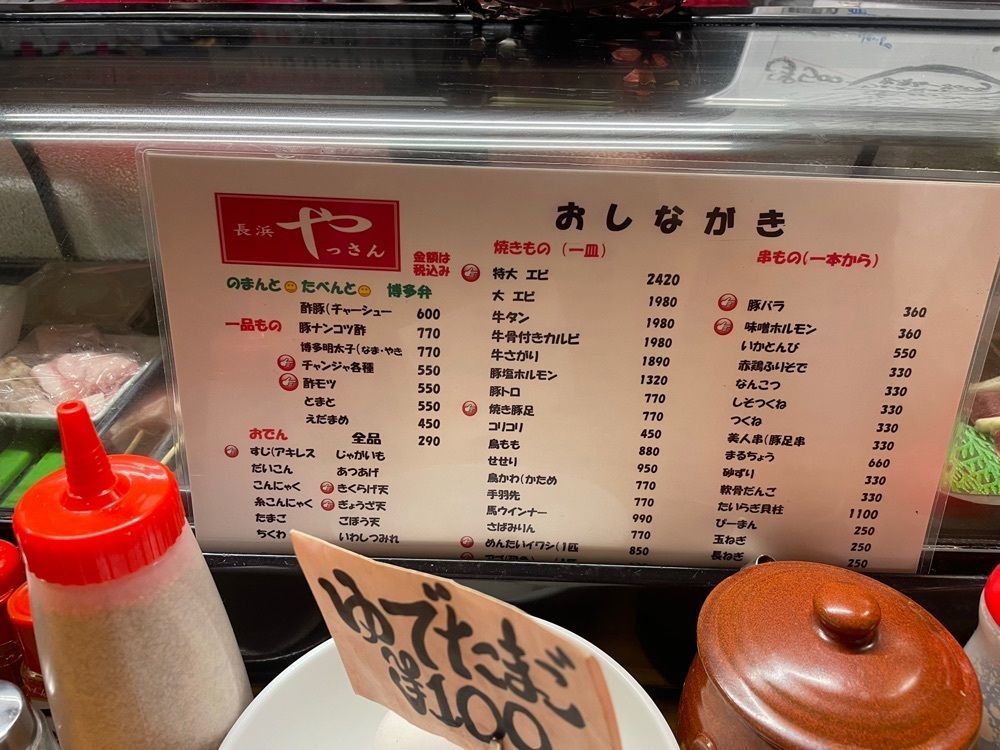 長浜 やっさん
おしながき
金額は
税込み
のまんと たべんと 博多弁
一品もの
酢豚(チャーシュー 600
豚ナンコツ酢 770
博多明太子(なま・やき 770
チャンジャ各種 550
酢モツ 550
とまと 550
えだまめ 450
おでん 全品 290
すじ(アキレス じゃがいも
だいこん あつあげ
こんにゃく きくらげ天
糸こんにゃく ぎょうざ天
たまご ごぼう天
ちくわ いわしつみれ
焼きもの(一皿)
特大 エビ 2420
大 エビ 1980
牛タン 1980
牛骨付きカルビ 1980
牛さがり 1890
豚塩ホルモン 1320
豚トロ 770
焼き豚足 770
コリコリ 450
鳥もも 880
せせり 950
鳥かわ(かため 770
手羽先 770
馬ウインナー 990
さばみりん 770
めんたいイワシ(1匹 850
串もの(一本から)
豚バラ 360
味噌ホルモン 360
いかとんび 550
赤鶏ふりそで 330
なんこつ 330
しそつくね 330
つくね 330
美人串(豚足串 330
まるちょう 660
砂ずり 330
軟骨だんご 330
たいらぎ貝柱 1100
ぴーまん 250
玉ねぎ 250
長ねぎ 250
ゆでたまご
100